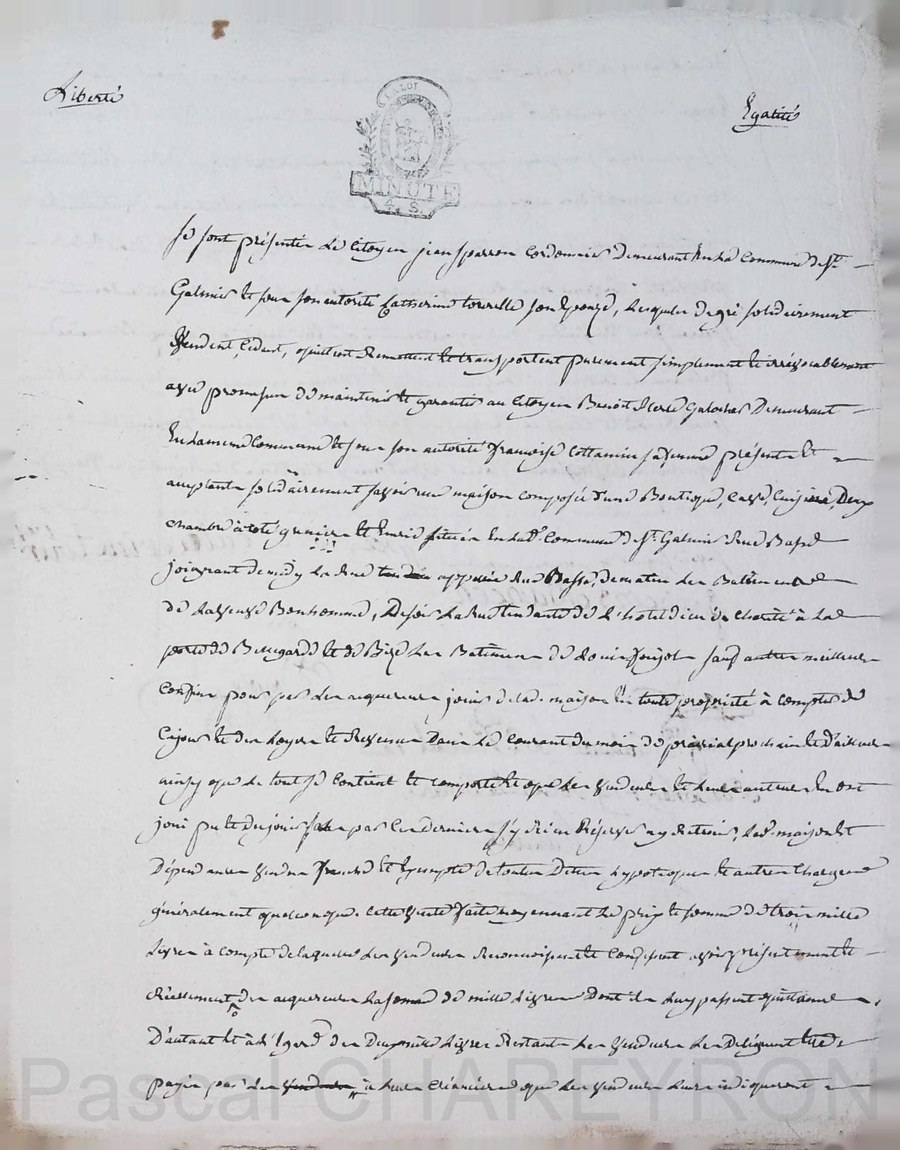 Liberté
Egalité
LA LOI
MINUTE
4. S.
Se sont présentés le Citoyen jean sparron Cordonnier demeurant en la Commune de St
Galmier et sous son autorité Catherine son Epouze, lesquels de gré solidairement
Vendent, cedent, quittent remettent et transportent purement simplement et irrévocablement
avec promesse de maintenir et garantir au Citoyen Benoit galocher Demeurant
En la meme Commune et sous son autorité françoise Cottancin sa femme présents et
acceptants solidairement savoir une maison composée d'une Boutique, Cave, Cuisine, Deux
chambre à coté grenier et située En lad. Commune de St Galmier rue Basse
joignant de midy la rue appellée rue Basse, de matin les Batiments
de la veuve Bonhomme, de soir la rue tendante de l'hotel dieu de charité à la
porte de Beauregard et de Bize les Batiments de Louis sauf autres meilleurs
Confins pour par les acquereurs jouir de lad. maison En toute propriété à compter de
Cejour et des loyers et revenus dans le courant du mois de prérial prochain et d'ailleurs
ainsy que le tout se contient et comporte et que les vendeurs et leurs auteurs En ont
joui pu et du jouir par ces derniers s'y rien Réserver ny retenir, lad. maison et
Dépendances vendue franche et Exempte de toutes Dettes hypoteques et autres Charges
généralement quelconque. cette vente faite moyennant le prix et somme de trois mille
Livres à compte de laquelle les vendeurs reconnoissent et Confessent avoir présentement et
réellement des acquereurs la somme de mille Livres Dont ils Luy passent quittance
D'autant et à l'égard des Deux mille Livres Restants les vendeurs les Deleguent
payés par les vendeurs à leurs Créanciers que les vendeurs leurs indiqueront
Pascal CHAREYRON